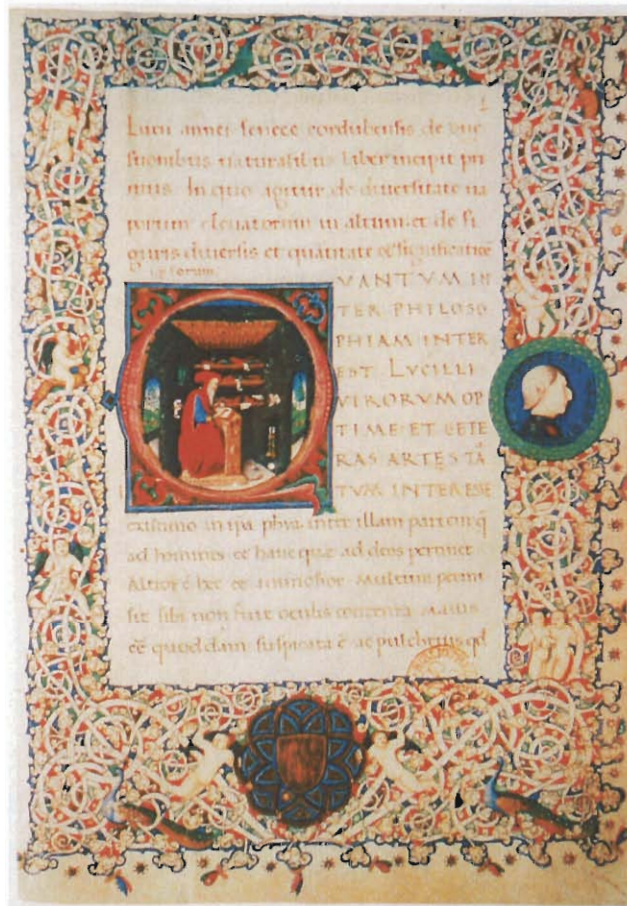 Lucii annei senece cordubensis de que
stionibus naturalibus liber incipit pri
mus. In quo agitur de diuersitate ua
porum eleuatorum in altum et de fi
guris diuersis et quātitate et significatiōe
ipsorum
QVANTVM IN
TER PHILOSO
PHIAM INTER
EST LVCILLI
VIRORVM OP
TIME ET CETE
RAS ARTES TĀ
TVM INTERESSE
existimo in ipa phia inter illam partem q̄
ad homines et hanc quae ad deos pertinet
Altior ē hec et animosior Multum permi
sit sibi non fuit oculis contenta Maius
eē quoddam suspicata ē ac pulchrius qd